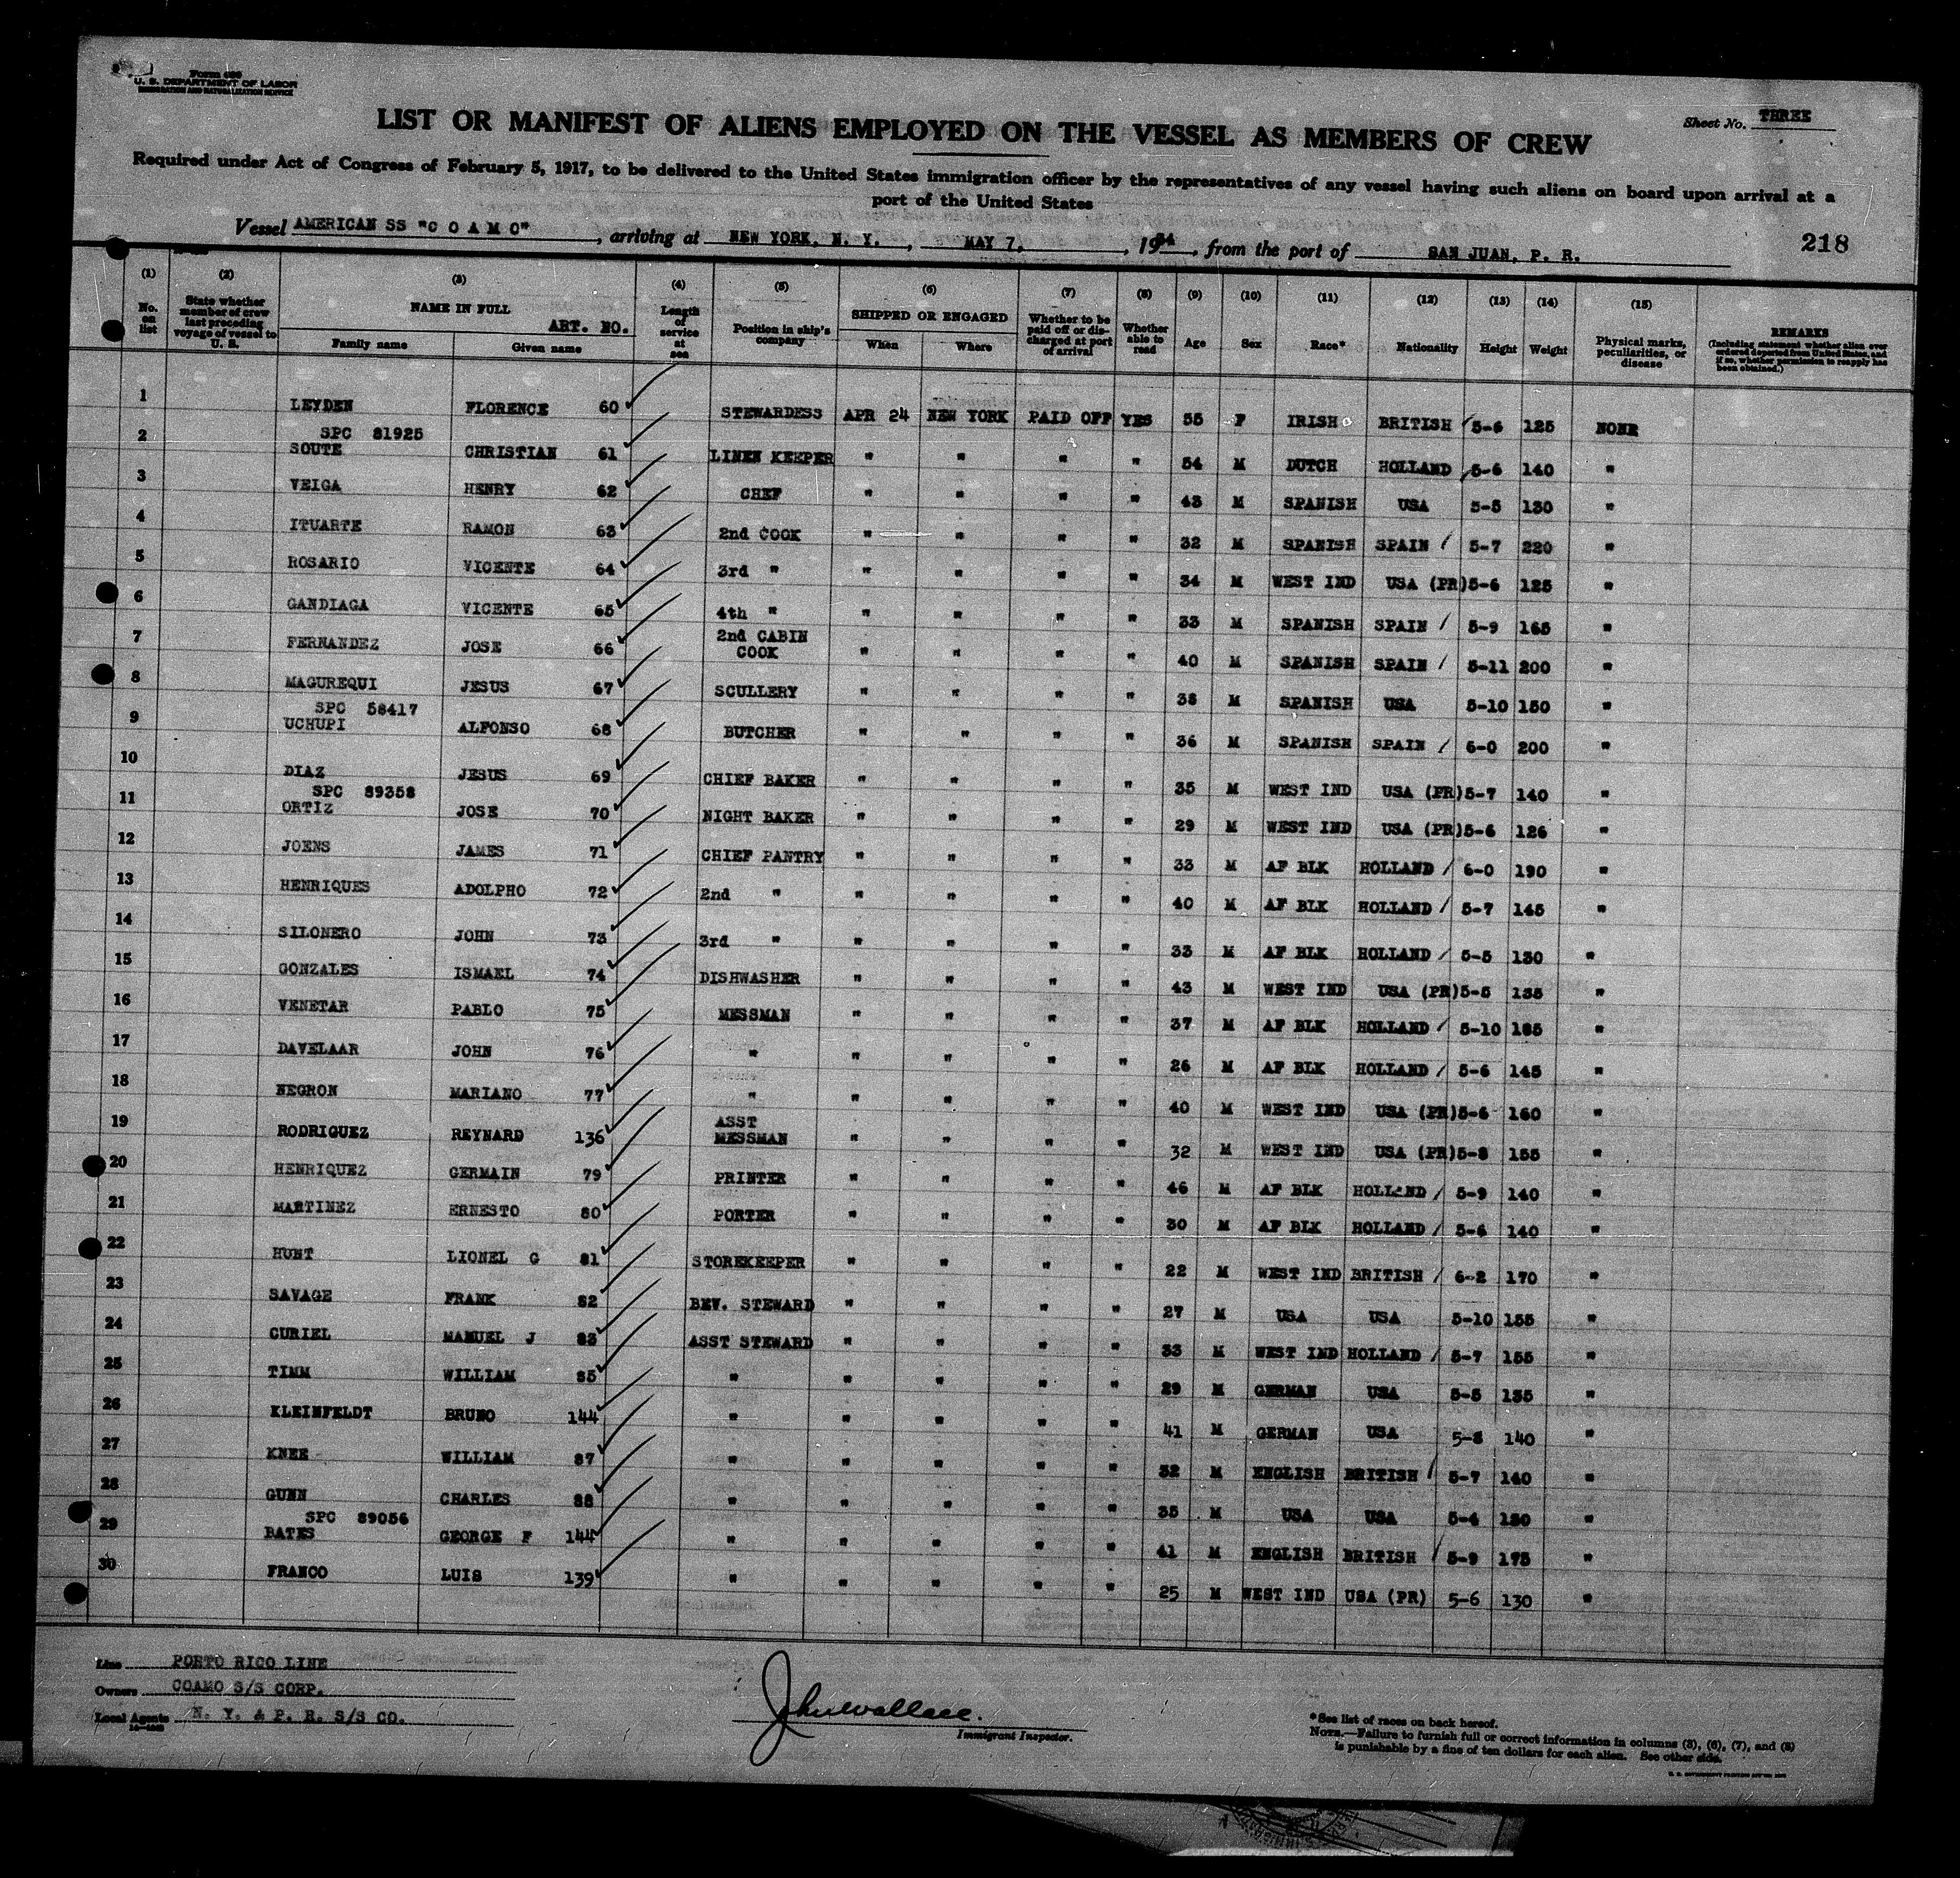 Form 680
U. S. DEPARTMENT OF LABOR
IMMIGRATION AND NATURALIZATION SERVICE
Sheet No. THREE
LIST OR MANIFEST OF ALIENS EMPLOYED ON THE VESSEL AS MEMBERS OF CREW
Required under Act of Congress of February 5, 1917, to be delivered to the United States immigration officer by the representatives of any vessel having such aliens on board upon arrival at a
port of the United States
Vessel AMERICAN SS "C O A M O", arriving at NEW YORK, N. Y., MAY 7, 1934, from the port of SAN JUAN, P. R.
218
(1) (2) (3) (4) (5) (6) (7) (8) (9) (10) (11) (12) (13) (14) (15)
No. on list
State whether member of crew last preceding voyage of vessel to U. S.
NAME IN FULL ART. NO.
Family name Given name
Length of service at sea
Position in ship's company
SHIPPED OR ENGAGED
When Where
Whether to be paid off or discharged at port of arrival
Whether able to read
Age Sex Race* Nationality Height Weight
Physical marks, peculiarities, or disease
REMARKS
(Including statement whether alien ever ordered deported from United States, and if so, whether permission to reapply has been obtained.)
1 LEYDEN FLORENCE 60 STEWARDESS APR 24 NEW YORK PAID OFF YES 55 F IRISH BRITISH 5-6 125 NONE
SPC 81925
2 SOUTE CHRISTIAN 61 LINEN KEEPER " " " " 54 M DUTCH HOLLAND 5-6 140 "
3 VEIGA HENRY 62 CHEF " " " " 43 M SPANISH USA 5-5 130 "
4 ITUARTE RAMON 63 2nd COOK " " " " 32 M SPANISH SPAIN / 5-7 220 "
5 ROSARIO VICENTE 64 3rd " " " " " 34 M WEST IND USA (PR) 5-6 125 "
6 GANDIAGA VICENTE 65 4th " " " " " 33 M SPANISH SPAIN / 5-9 165 "
7 FERNANDEZ JOSE 66 2nd CABIN COOK " " " " 40 M SPANISH SPAIN / 5-11 200 "
8 MAGUREQUI JESUS 67 SCULLERY " " " " 38 M SPANISH USA 5-10 150 "
SPC 58417
9 UCHUPI ALFONSO 68 BUTCHER " " " " 36 M SPANISH SPAIN / 6-0 200 "
10 DIAZ JESUS 69 CHIEF BAKER " " " " 35 M WEST IND USA (PR) 5-7 140 "
SPC 89358
11 ORTIZ JOSE 70 NIGHT BAKER " " " " 29 M WEST IND USA (PR) 5-6 126 "
12 JOENS JAMES 71 CHIEF PANTRY " " " " 33 M AF BLK HOLLAND / 6-0 190 "
13 HENRIQUES ADOLPHO 72 2nd " " " " " 40 M AF BLK HOLLAND / 5-7 145 "
14 SILONERO JOHN 73 3rd " " " " " 33 M AF BLK HOLLAND / 5-5 130 "
15 GONZALES ISMAEL 74 DISHWASHER " " " " 43 M WEST IND USA (PR) 5-5 135 "
16 VENETAR PABLO 75 MESSMAN " " " " 37 M AF BLK HOLLAND / 5-10 185 "
17 DAVELAAR JOHN 76 " " " " " 26 M AF BLK HOLLAND / 5-6 145 "
18 NEGRON MARIANO 77 " " " " " 40 M WEST IND USA (PR) 5-6 160 "
19 RODRIGUEZ REYNARD 136 ASST MESSMAN " " " " 32 M WEST IND USA (PR) 5-8 155 "
20 HENRIQUEZ GERMAIN 79 PRINTER " " " " 46 M AF BLK HOLLAND / 5-9 140 "
21 MARTINEZ ERNESTO 80 PORTER " " " " 30 M AF BLK HOLLAND / 5-6 140 "
22 HUNT LIONEL G 81 STOREKEEPER " " " " 22 M WEST IND BRITISH / 6-2 170 "
23 SAVAGE FRANK 82 BEV. STEWARD " " " " 27 M USA USA 5-10 155 "
24 CURIEL MANUEL J 83 ASST STEWARD " " " " 33 M WEST IND HOLLAND / 5-7 155 "
25 TIMM WILLIAM 85 " " " " " 29 M GERMAN USA 5-5 135 "
26 KLEINFELDT BRUNO 144 " " " " " 41 M GERMAN USA 5-8 140 "
27 KNEE WILLIAM 87 " " " " " 32 M ENGLISH BRITISH / 5-7 140 "
28 GUNN CHARLES 88 " " " " " 35 M USA USA 5-4 130 "
SPC 89056
29 BATES GEORGE F 144 " " " " " 41 M ENGLISH BRITISH / 5-9 175 "
30 FRANCO LUIS 139 " " " " " 25 M WEST IND USA (PR) 5-6 130 "
Line PORTO RICO LINE
Owners COAMO S/S CORP.
Local Agents N. Y. & P. R. S/S CO.
Jhnwallace.
Immigrant Inspector.
*See list of races on back hereof.
NOTE.—Failure to furnish full or correct information in columns (3), (6), (7), and (8)
is punishable by a fine of ten dollars for each alien. See other side.